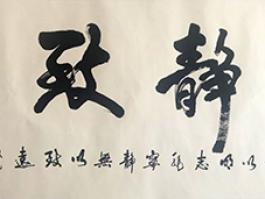 静致
以明志非寧静無以致遠